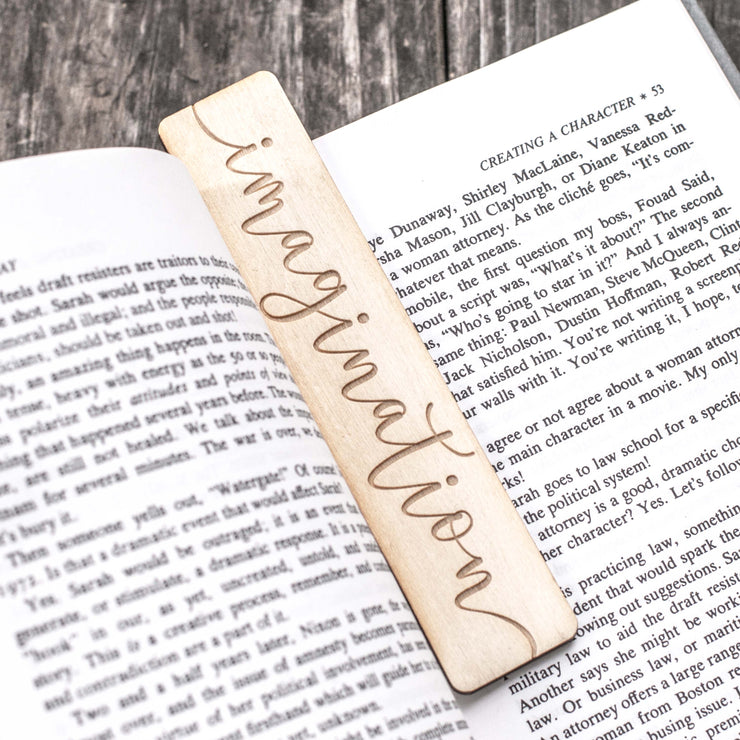 AY
feels draft resisters are traitors to their
e shot. Sarah would argue the opposite
moral and illegal; and the people respons
icians, should be taken out and shot!
, an amazing thing happens in the room.
tense, heavy with energy as the 50 or so
polarize their attitudes and points of
thing that happened several years before. The
are still not healed. We talk about the
am for several minutes. The war is over, we
's bury it.
Then someone yells out, "Watergate!" Of course
1972. Is that a dramatic event that would affect Sarah
Yes. Sarah would be outraged; it is an event that
generate, or stimulate, a dramatic response. It is a
"hook" in our, as yet, uncreated, untold, and
story. This is a creative process, remember, and
and contradiction are a part of it.
Two and a half years later, Nixon is gone,
over, and the issue of amnesty becomes
of her political involvement, has
firsthand which will guide her
yet, unknown.
might be involved in the
imagination
CREATING A CHARACTER * 53
ye Dunaway, Shirley MacLaine, Vanessa Red-
rsha Mason, Jill Clayburgh, or Diane Keaton in
a woman attorney. As the cliché goes, "It's com-
hatever that means.
mobile, the first question my boss, Fouad Said,
bout a script was, "What's it about?" The second
s, "Who's going to star in it?" And I always an-
same thing: Paul Newman, Steve McQueen, Clint
Jack Nicholson, Dustin Hoffman, Robert Red
hat satisfied him. You're not writing a screenp
ur walls with it. You're writing it, I hope, to
agree or not agree about a woman attor
he main character in a movie. My only
ks!
arah goes to law school for a specifi
the political system!
attorney is a good, dramatic cho
her character? Yes. Let's follow
is practicing law, something
dent that would spark the
rowing out suggestions. Sar
military law to aid the draft resist
Another says she might be workin
law. Or business law, or mariti
An attorney offers a large range
woman from Boston re
busing issue. I